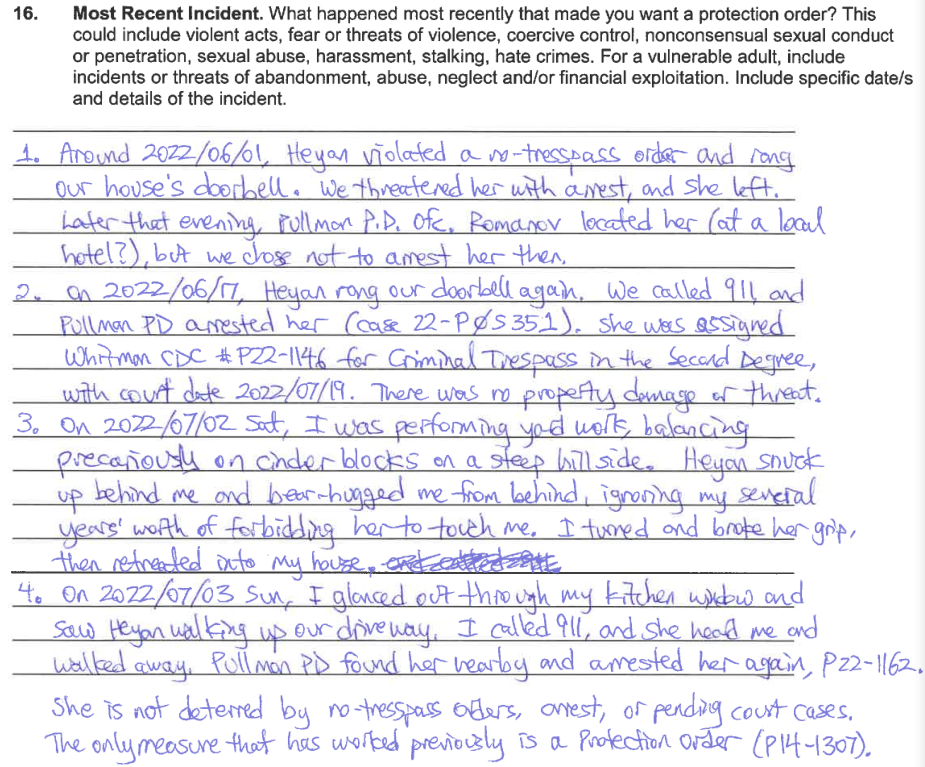 16. Most Recent Incident. What happened most recently that made you want a protection order? This
could include violent acts, fear or threats of violence, coercive control, nonconsensual sexual conduct
or penetration, sexual abuse, harassment, stalking, hate crimes. For a vulnerable adult, include
incidents or threats of abandonment, abuse, neglect and/or financial exploitation. Include specific date/s
and details of the incident.
1. Around 2022/06/01, Heyan violated a no-tresspass order and rang
our house's doorbell. We threatened her with arrest, and she left.
Later that evening, Pullman P.D. Ofc. Romanov located her (at a local
hotel?), but we chose not to arrest her then.
2. On 2022/06/17, Heyan rang our doorbell again. We called 911, and
Pullman PD arrested her (case 22-PØS351). She was assigned
Whitman CDC #P22-1146 for Criminal Trespass in the Second Degree,
with court date 2022/07/19. There was no property damage or threat.
3. On 2022/07/02 Sat, I was performing yard work, balancing
precariously on cinder blocks on a steep hillside. Heyan snuck
up behind me and bear-hugged me from behind, ignoring my several
years' worth of forbidding her to touch me. I turned and broke her grip,
then retreated into my house.
4. On 2022/07/03 Sun, I glanced out through my kitchen window and
saw Heyan walking up our driveway. I called 911, and she heard me and
walked away. Pullman PD found her nearby and arrested her again, P22-1162.
She is not deterred by no-tresspass orders, arrest, or pending court cases.
The only measure that has worked previously is a Protection Order (P14-1307).